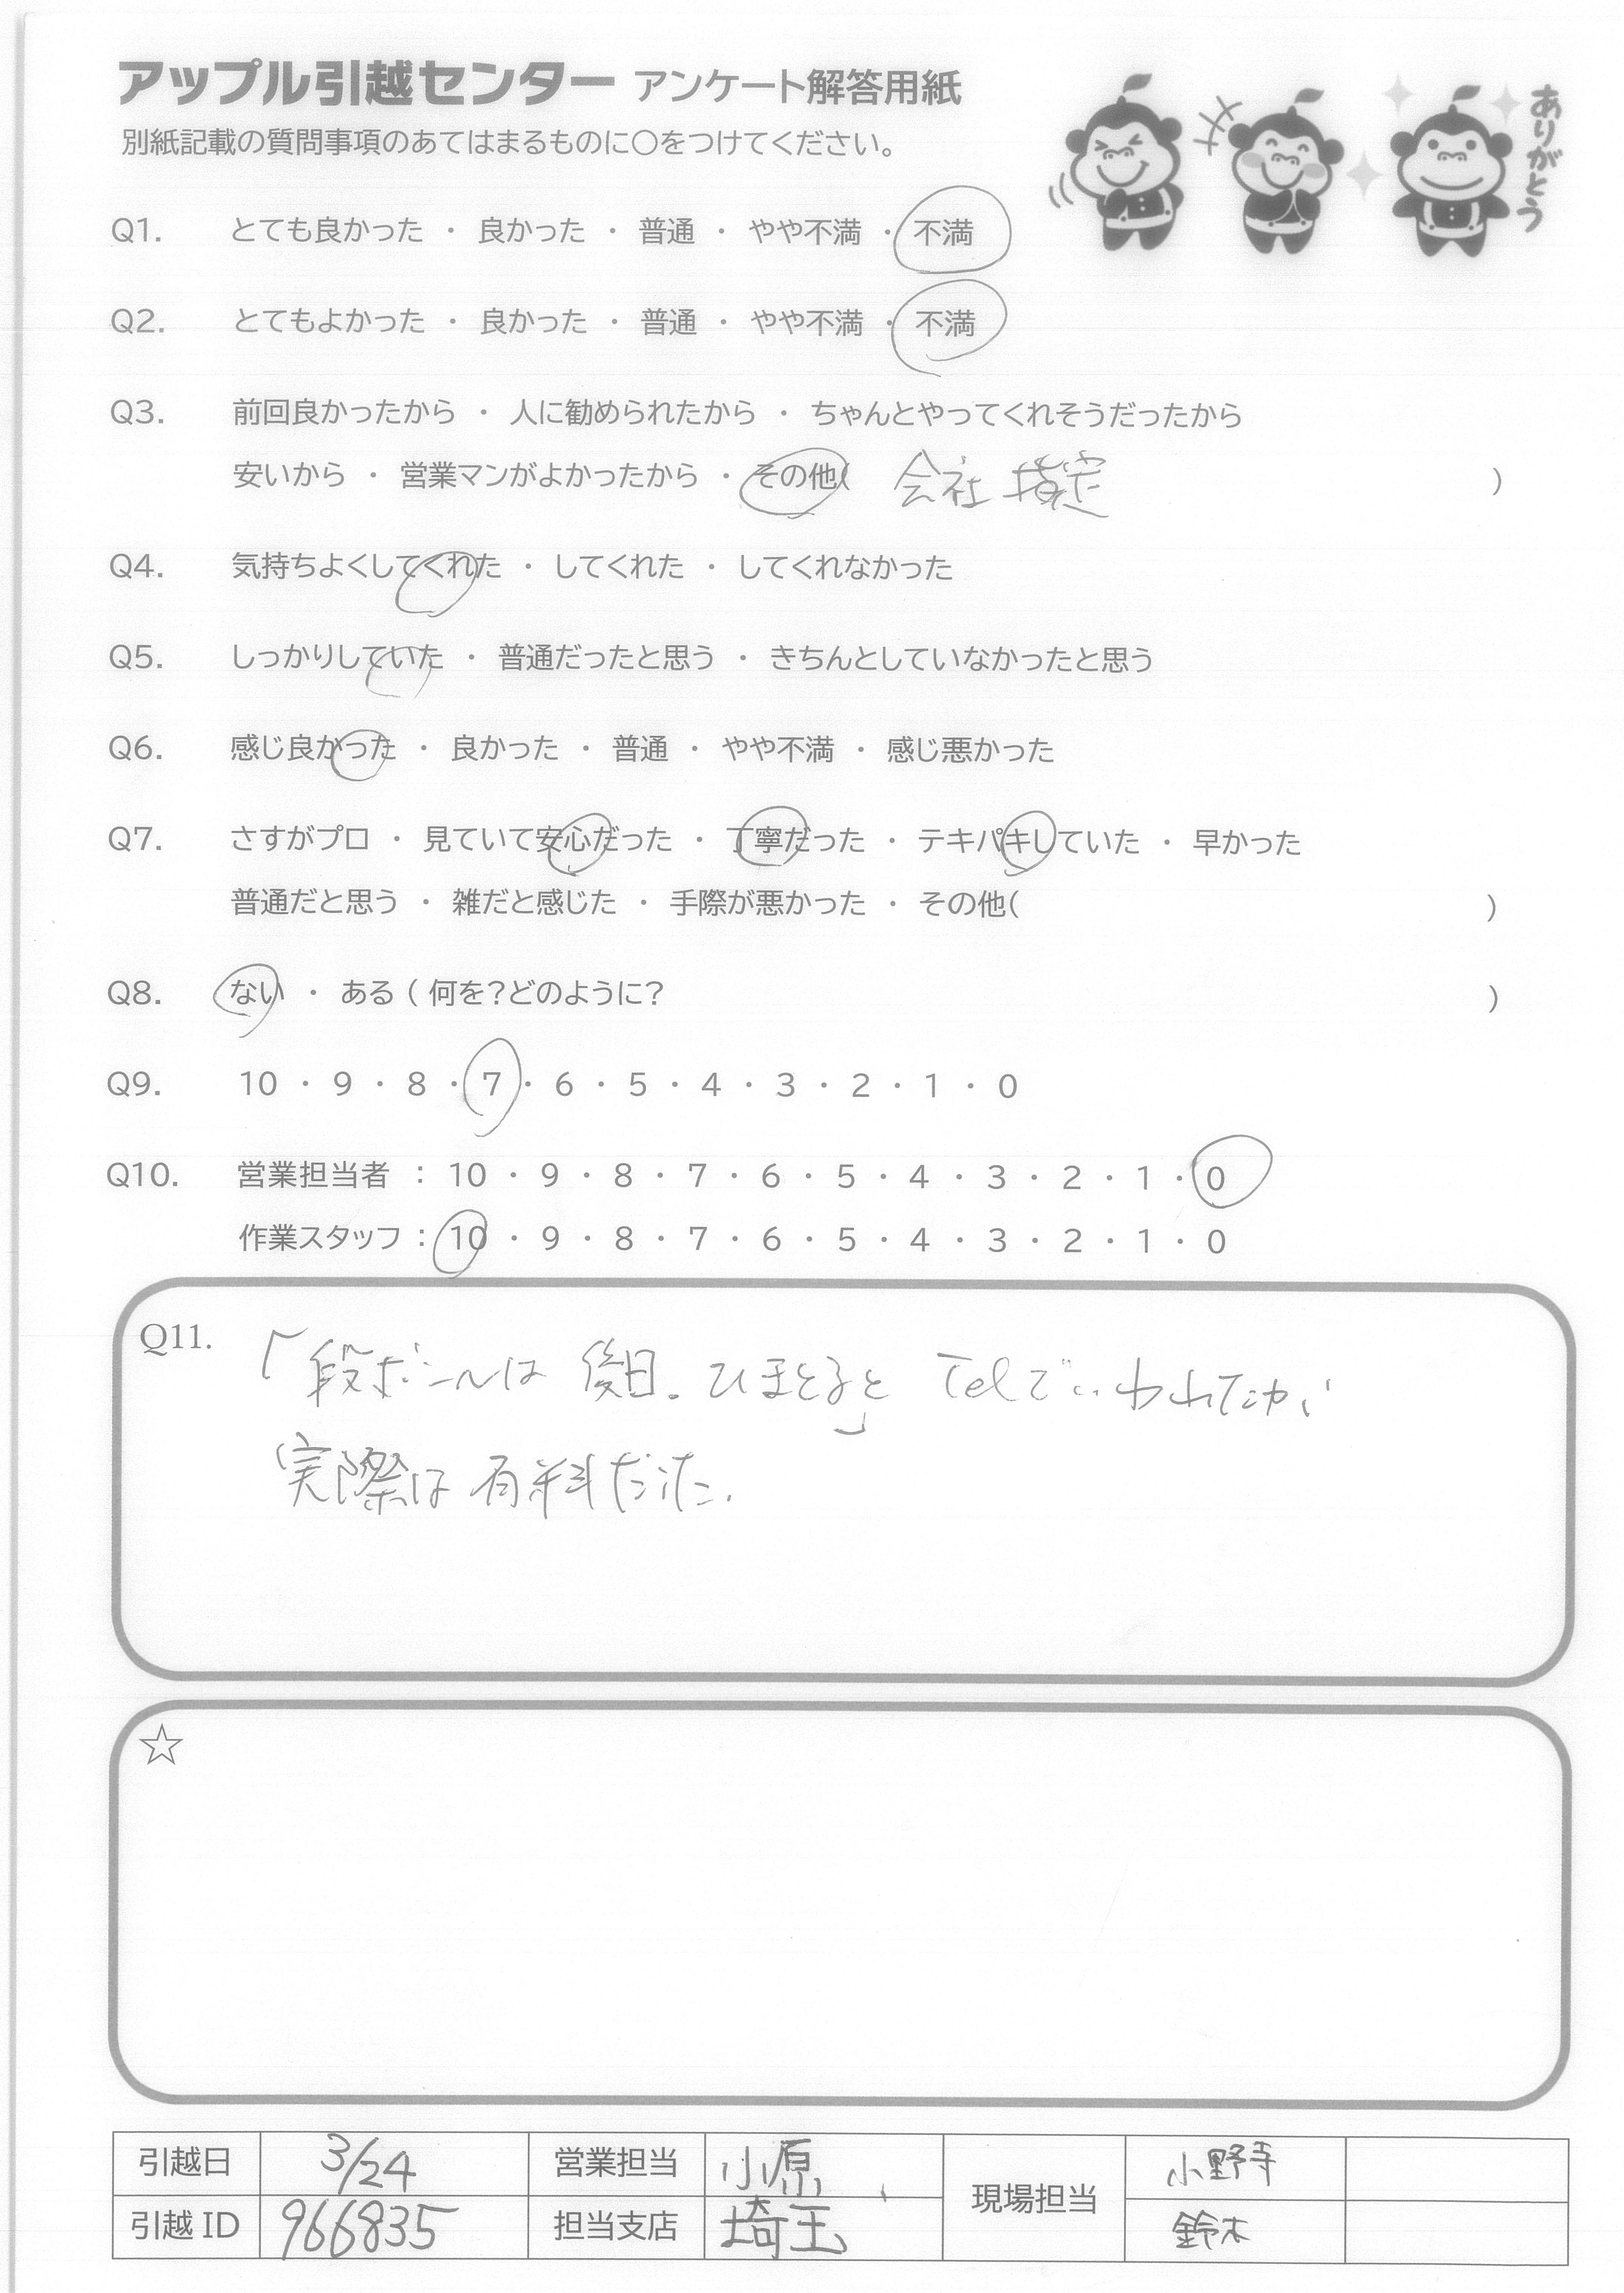 アップル引越センター アンケート解答用紙
別紙記載の質問事項のあてはまるものに○をつけてください。
ありがとう
Q1. とても良かった ・ 良かった ・ 普通 ・ やや不満 ・ 不満
Q2. とてもよかった ・ 良かった ・ 普通 ・ やや不満 ・ 不満
Q3. 前回良かったから ・ 人に勧められたから ・ ちゃんとやってくれそうだったから
安いから ・ 営業マンがよかったから ・ その他( 会社 指定 )
Q4. 気持ちよくしてくれた ・ してくれた ・ してくれなかった
Q5. しっかりしていた ・ 普通だったと思う ・ きちんとしていなかったと思う
Q6. 感じ良かった ・ 良かった ・ 普通 ・ やや不満 ・ 感じ悪かった
Q7. さすがプロ ・ 見ていて安心だった ・ 丁寧だった ・ テキパキしていた ・ 早かった
普通だと思う ・ 雑だと感じた ・ 手際が悪かった ・ その他( )
Q8. ない ・ ある ( 何を?どのように? )
Q9. 10 ・ 9 ・ 8 ・ 7 ・ 6 ・ 5 ・ 4 ・ 3 ・ 2 ・ 1 ・ 0
Q10. 営業担当者 : 10 ・ 9 ・ 8 ・ 7 ・ 6 ・ 5 ・ 4 ・ 3 ・ 2 ・ 1 ・ 0
作業スタッフ : 10 ・ 9 ・ 8 ・ 7 ・ 6 ・ 5 ・ 4 ・ 3 ・ 2 ・ 1 ・ 0
Q11. 「段ボールは 後日 とると」 Telでいわれたが、
実際は 有料だった.
☆
引越日 3/24 営業担当 小原 現場担当 小野寺
引越 ID 966835 担当支店 埼玉 鈴木